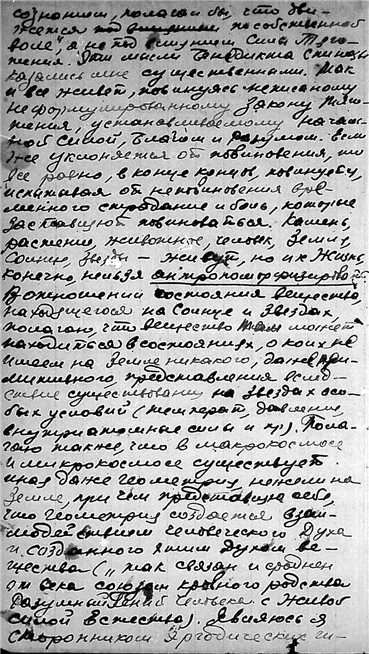 сознанием, полагал бы, что дви-
жется по собственной
воле, а не под влиянием силы тяго-
тения. Эти мысли Бенедикта Спинозы
казались мне существенными. Так
и все живет, повинуясь неписаному
неформулированному закону тяго-
тения, устанавливаемому началь-
ной силой, благом и разумом. Если
же уклоняется от повиновения, то
все равно, в конце концов, повинуется,
испытывая от неповиновения вре-
менного страдание и боль, которые
заставляют повиноваться. Камень,
растение, животное, человек, Земля,
Солнце, звезды – живут, но их жизнь,
конечно, нельзя антропоморфизировать.
В отношении состояния вещества,
находящегося на Солнце и звездах
полагаю, что вещество там может
находиться в состояниях, о коих не
имеем на Земле никакого, даже при-
митивного, представления вслед-
ствие существования на звездах осо-
бых условий (температ, давления,
внутриатомные силы и пр). Пола-
гаю также, что в макрокосмосе
и микрокосмосе существует
иная даже геометрия, нежели на
Земле, при чем представляю себе,
что геометрия создается взаи-
модействием человеческого Духа
и созданного этим духом ве-
щества (, так связан и сроднен
от века союзом кровного родства
Разумный Гений Человека с Живой
силой Естества). Являюсь я
сторонником Эргодических ги-